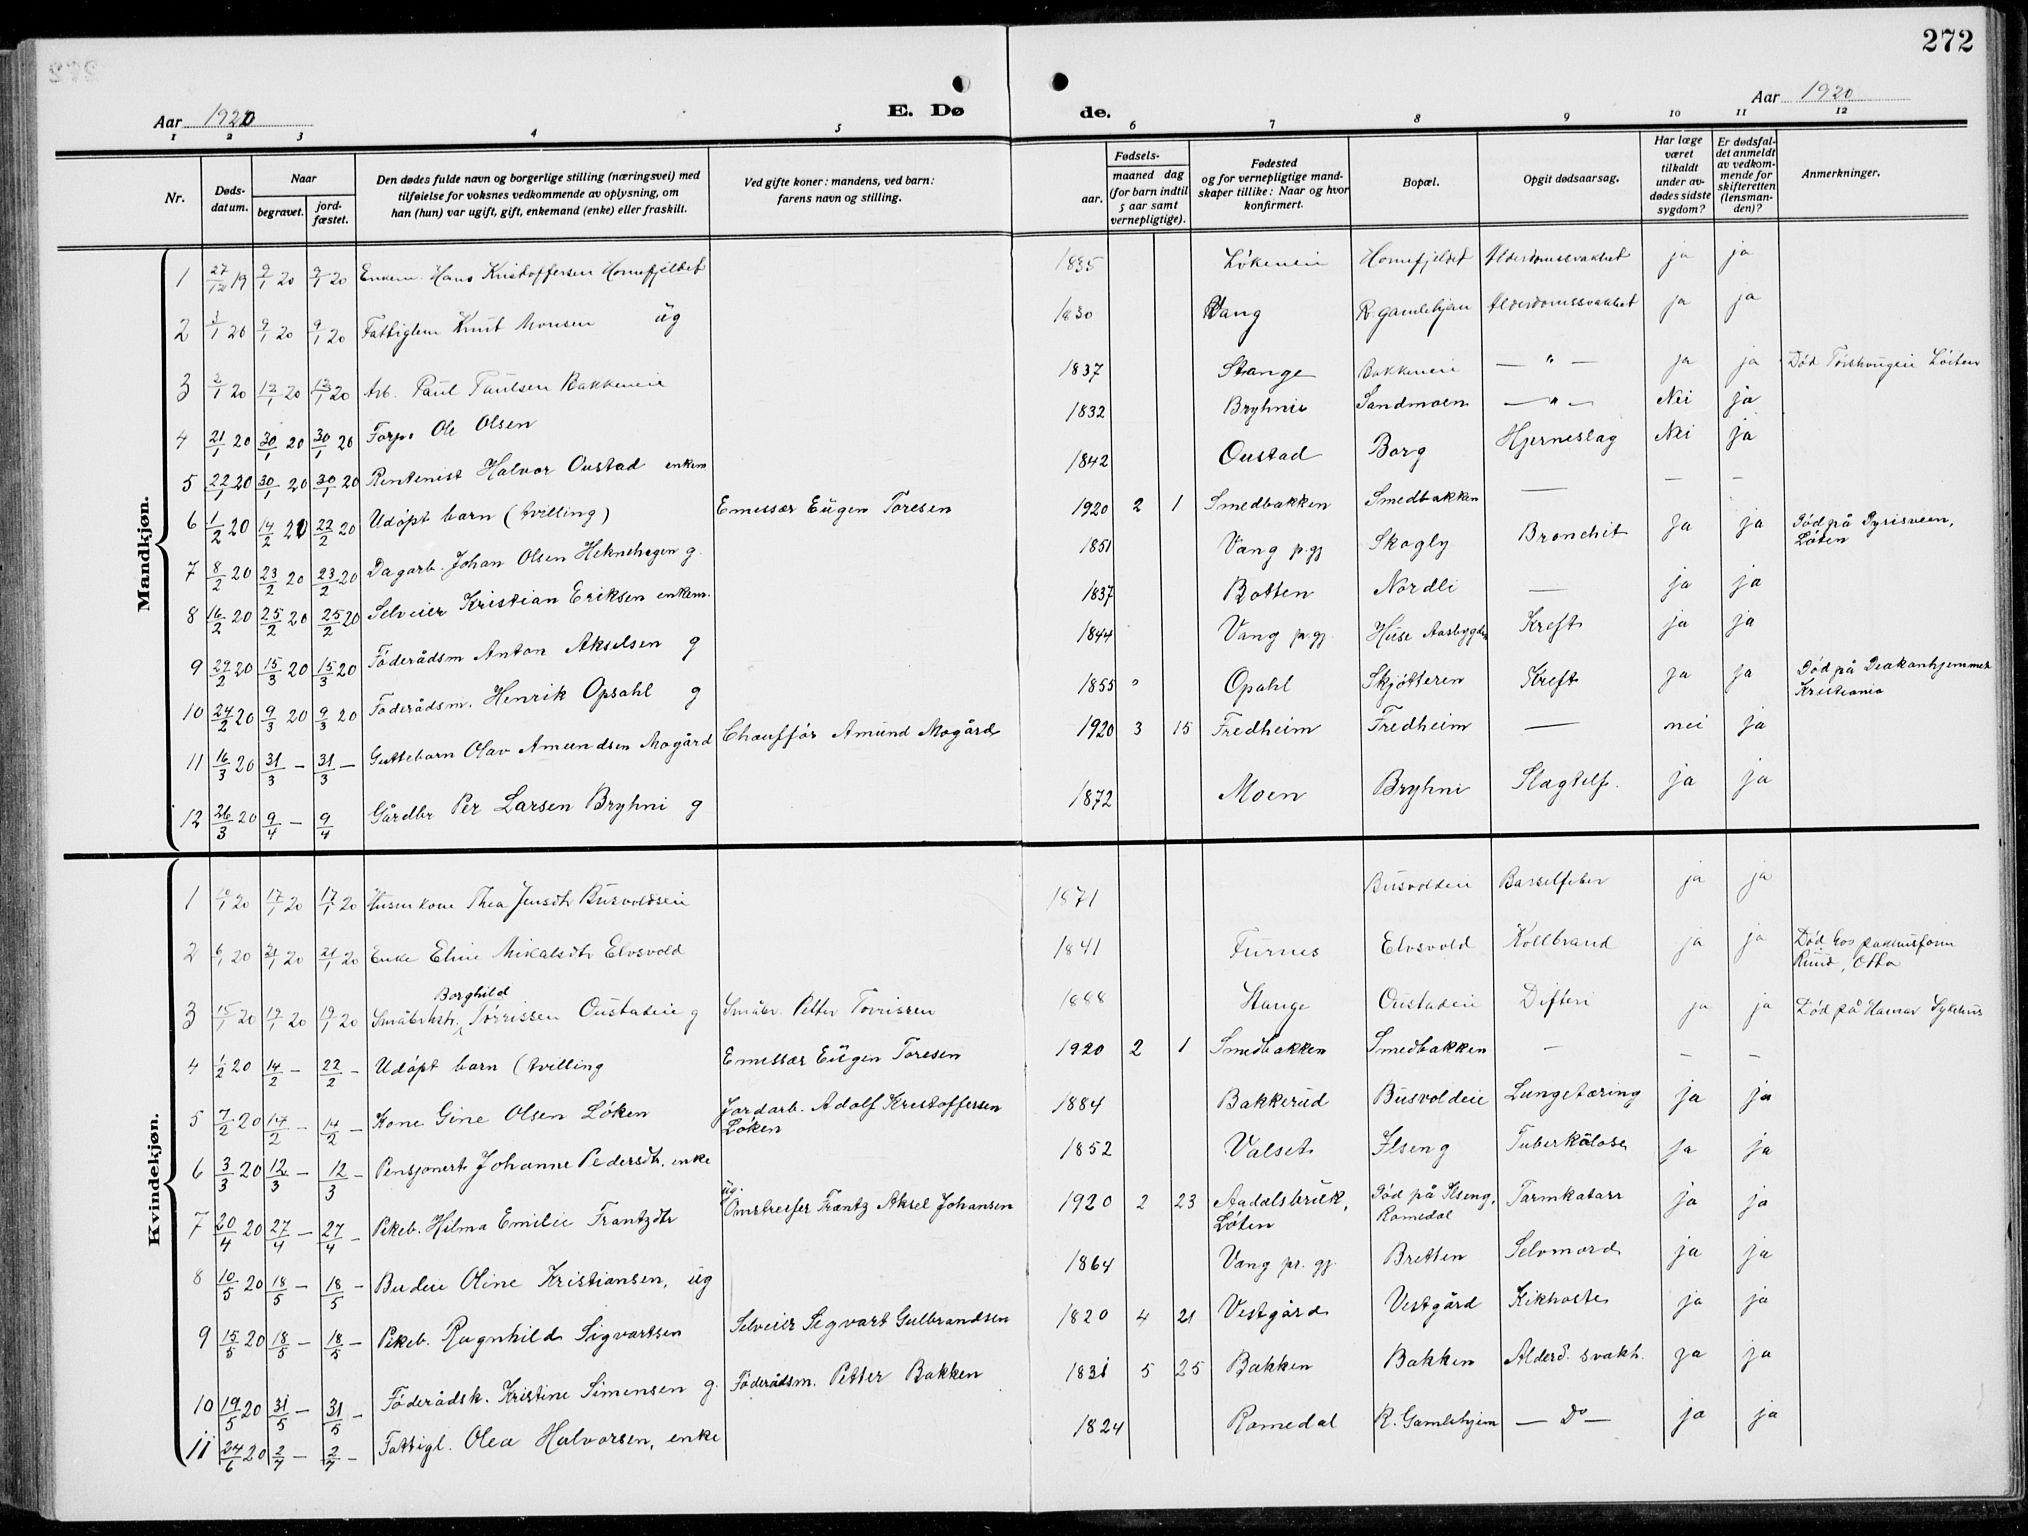 272
Aar 1920
E. Døde.
Aar 1920
1 2 3 4 5 6 7 8 9 10 11 12
Nr.
Døds-datum.
Naar
begravet.
jord-fæstet.
Den dødes fulde navn og borgerlige stilling (næringsvei) med
tilføielse for voksnes vedkommende av oplysning, om
han (hun) var ugift, gift, enkemand (enke) eller fraskilt.
Ved gifte koner: mandens, ved barn:
farens navn og stilling.
Fødsels-
aar.
maaned dag
(for barn indtil
5 aar samt
vernepligtige).
Fødested
og for vernepligtige mand-
skaper tillike: Naar og hvor
konfirmert.
Bopæl.
Opgit dødsaarsag.
Har læge
været
tilkaldt
under av-
dødes sidste
sygdom?
Er dødsfal-
det anmeldt
av vedkom-
mende for
skifteretten
(lensman-
den)?
Anmerkninger.
Mandkjøn.
1 27/12 19 9/1 20 9/1 20 Enkem. Hans Kristoffersen Hornefjeldet 1835 Løkeneie Hornefjeldet Alderdomssvakhet ja ja
2 1/1 20 9/1 20 9/1 20 Fattiglem Knut Monsen ug 1830 Vang R. gamlehjem Alderdomssvakhet ja ja
3 2/1 20 12/1 20 12/1 20 Arb. Paul Paulsen Bakkeneie 1837 Stange Bakkeneie — " — ja ja Død Løiten
4 21/1 20 30/1 20 30/1 20 Forp. Ole Olsen 1832 Bryhnie Sandmoen — " — Nei ja
5 22/1 20 30/1 20 30/1 20 Rentenist Halvor Oustad enkem 1842 Oustad Borg Hjerneslag Nei ja
6 1/2 20 14/2 20 22/2 20 Udøpt barn (tvilling) Emessær Eugen Toresen 1920 2 1 Smedbakken Smedbakken — — —
7 8/2 20 23/2 20 23/2 20 Dagarb. Johan Olsen Heknehagen g. 1851 Vang p.gj Skogly Bronchit ja ja Død på Pyrisveen, Løten
8 16/2 20 25/2 20 25/2 20 Selveier Kristian Eriksen enkem. 1837 Botten Nordli — ja ja
9 29/2 20 15/3 20 15/3 20 Føderådsm Anton Akselsen g 1844 Vang p.gj. Huse Aasbygda Kreft ja ja
10 24/2 20 9/3 20 9/3 20 Føderådsm. Henrik Opsahl g 1855 Opahl Skjøtteren Kreft ja ja Død på Deakonhjemmet Kristiania
11 16/3 20 31/3 — 31/3 — Guttebarn Olav Amundsen Mogård Chauffør Amund Mogård 1920 3 15 Fredheim Fredheim — nei ja
12 26/3 20 9/4 — 9/4 Gårdbr Per Larsen Bryhni g 1872 Moen Bryhni Slagtilf. ja ja
Kvindekjøn.
1 /1 20 17/1 20 17/1 20 Husm kone Thea Jensdtr Busvoldseie 1871 Busvoldeie Barselfeber ja ja
2 6/1 20 21/1 20 21/1 20 Enke Eline Mikalsdtr Elvsvold 1841 Furnes Elvsvold Kollbrand ja ja Død hos pakhusform Ruud, Otta
3 15/1 20 19/1 20 19/1 20 Småbrkstr. Borghild Tørrissen Oustadeie g Småbr. Petter Torrissen 1888 Stange Oustadeie Difteri ja ja Død på Hamar Sykehus
4 1/2 20 14/2 — 22/2 — Udøpt barn (tvilling Emessær Eugen Toresen 1920 2 1 Smedbakken Smedbakken — — —
5 7/2 20 14/2 — 14/2 — Kone Gine Olsen Løken Jordarb. Adolf Kristoffersen Løken 1884 Bakkerud Busvoldeie Lungetæring ja ja
6 3/3 20 12/3 — 12/3 — Pensjonert Johanne Pedersdtr. enke 1852 Valset Ilseng Tuberkulose ja ja
7 20/4 20 27/4 — 27/4 — Pikeb. Hilma Emilie Frantzdtr ug. Omstreifer Frantz Aksel Johansen 1920 2 23 Aadalsbruk, Løten Død på Ilseng, Romedal Tarmkatarr ja ja
8 10/5 20 18/5 — 18/5 — Budeie Oline Kristiansen, ug 1864 Vang pr. gj. Bretten Selvmord ja ja
9 15/5 20 18/5 — 18/5 — Pikeb. Ragnhild Sigvartsen Selveier Sigvart Gulbrandsen 1820 4 21 Vestgård Vestgård Kikhoste ja ja
10 19/5 20 31/5 — 31/5 — Føderådsk. Kristine Simensen g. Føderådsm. Petter Bakken 1831 5 25 Bakken Bakken Alderd. svakh. ja ja
11 24/6 20 2/7 — 2/7 — Fattigl. Olea Halvorsen, enke 1824 Romedal R. Gamlehjem — Do — ja ja